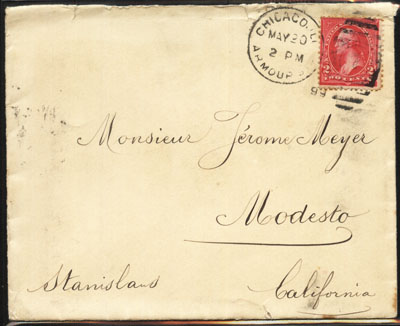 CHICAGO, ILL
MAY 20
2 PM
ARMOUR
99
2 2
TWO CENTS
Monsieur Jérome Meyer
Modesto
Stanislaus California